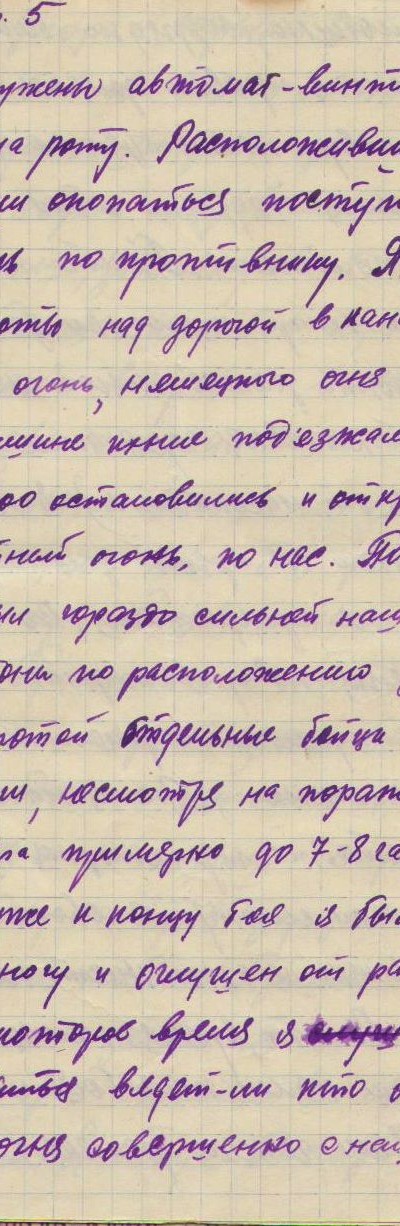 . 5
ужены автомат-винт
на роту. Расположивши
ли окопаться поступ
нь по противнику. Я
оты над дорогой в кан
огонь, немецкого огня
ашине и иные подъезжал
00 остановились и откр
тный огонь, по нас. По
ли гораздо сильней наш
они по расположению
ротой отдельные бойцы
ли, несмотря на пораж
га примерно до 7-8 ча
же к концу боя я был
ногу и оглушен от ра
которое время я
аться ведет-ли кто о
огня совершенно с наш